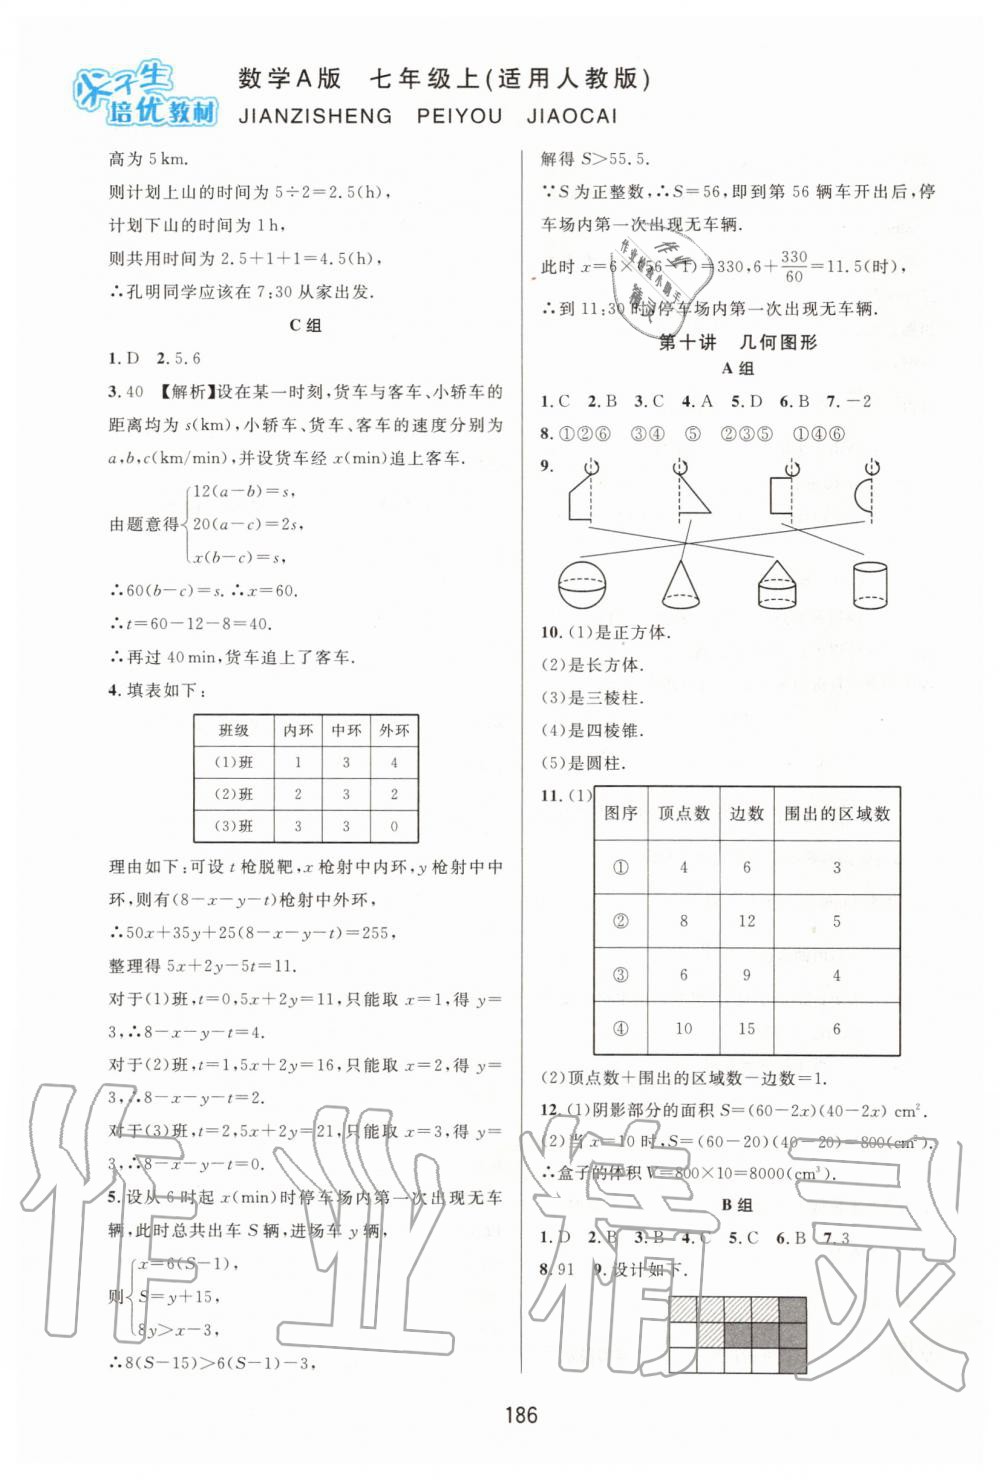 尖子生
培优教材
数学A版 七年级上(适用人教版)
JIANZISHENG PEIYOU JIAOCAI
高为5 km.
则计划上山的时间为5÷2=2.5(h),
计划下山的时间为1 h,
则共用时间为2.5+1+1=4.5(h).
∴孔明同学应该在7:30从家出发.
C组
1. D 2. 5.6
3. 40 【解析】设在某一时刻,货车与客车、小轿车的
距离均为s(km),小轿车、货车、客车的速度分别为
a,b,c(km/min),并设货车经x(min)追上客车.
12(a-b)=s,
由题意得 20(a-c)=2s,
x(b-c)=s,
∴60(b-c)=s.∴x=60.
∴t=60-12-8=40.
∴再过40 min,货车追上了客车.
4. 填表如下:
班级 内环 中环 外环
(1)班 1 3 4
(2)班 2 3 2
(3)班 3 3 0
理由如下:可设t枪脱靶,x枪射中内环,y枪射中中
环,则有(8-x-y-t)枪射中外环,
∴50x+35y+25(8-x-y-t)=255,
整理得5x+2y-5t=11.
对于(1)班,t=0,5x+2y=11,只能取x=1,得y=
3,∴8-x-y-t=4.
对于(2)班,t=1,5x+2y=16,只能取x=2,得y=
3,∴8-x-y-t=2.
对于(3)班,t=2,5x+2y=21,只能取x=3,得y=
3,∴8-x-y-t=0.
5. 设从6时起x(min)时停车场内第一次出现无车
辆,此时总共出车S辆,进场车y辆,
x=6(S-1),
则 S=y+15,
8y>x-3,
∴8(S-15)>6(S-1)-3,
解得S>55.5.
∵S为正整数,∴S=56,即到第56辆车开出后,停
车场内第一次出现无车辆.
此时x=6×(56-1)=330,6+330/60=11.5(时),
∴到11:30时,停车场内第一次出现无车辆.
第十讲 几何图形
A组
1. C 2. B 3. C 4. A 5. D 6. B 7. -2
8. ①②⑥ ③④ ⑤ ②③⑤ ①④⑥
9.
10. (1)是正方体.
(2)是长方体.
(3)是三棱柱.
(4)是四棱锥.
(5)是圆柱.
11. (1)
图序 顶点数 边数 围出的区域数
① 4 6 3
② 8 12 5
③ 6 9 4
④ 10 15 6
(2)顶点数+围出的区域数-边数=1.
12. (1)阴影部分的面积S=(60-2x)(40-2x) cm².
(2)当x=10时,S=(60-20)(40-20)=800(cm²).
∴盒子的体积V=800×10=8000(cm³).
B组
1. D 2. B 3. B 4. C 5. C 6. B 7. 3
8. 91 9. 设计如下.
186
作业精灵